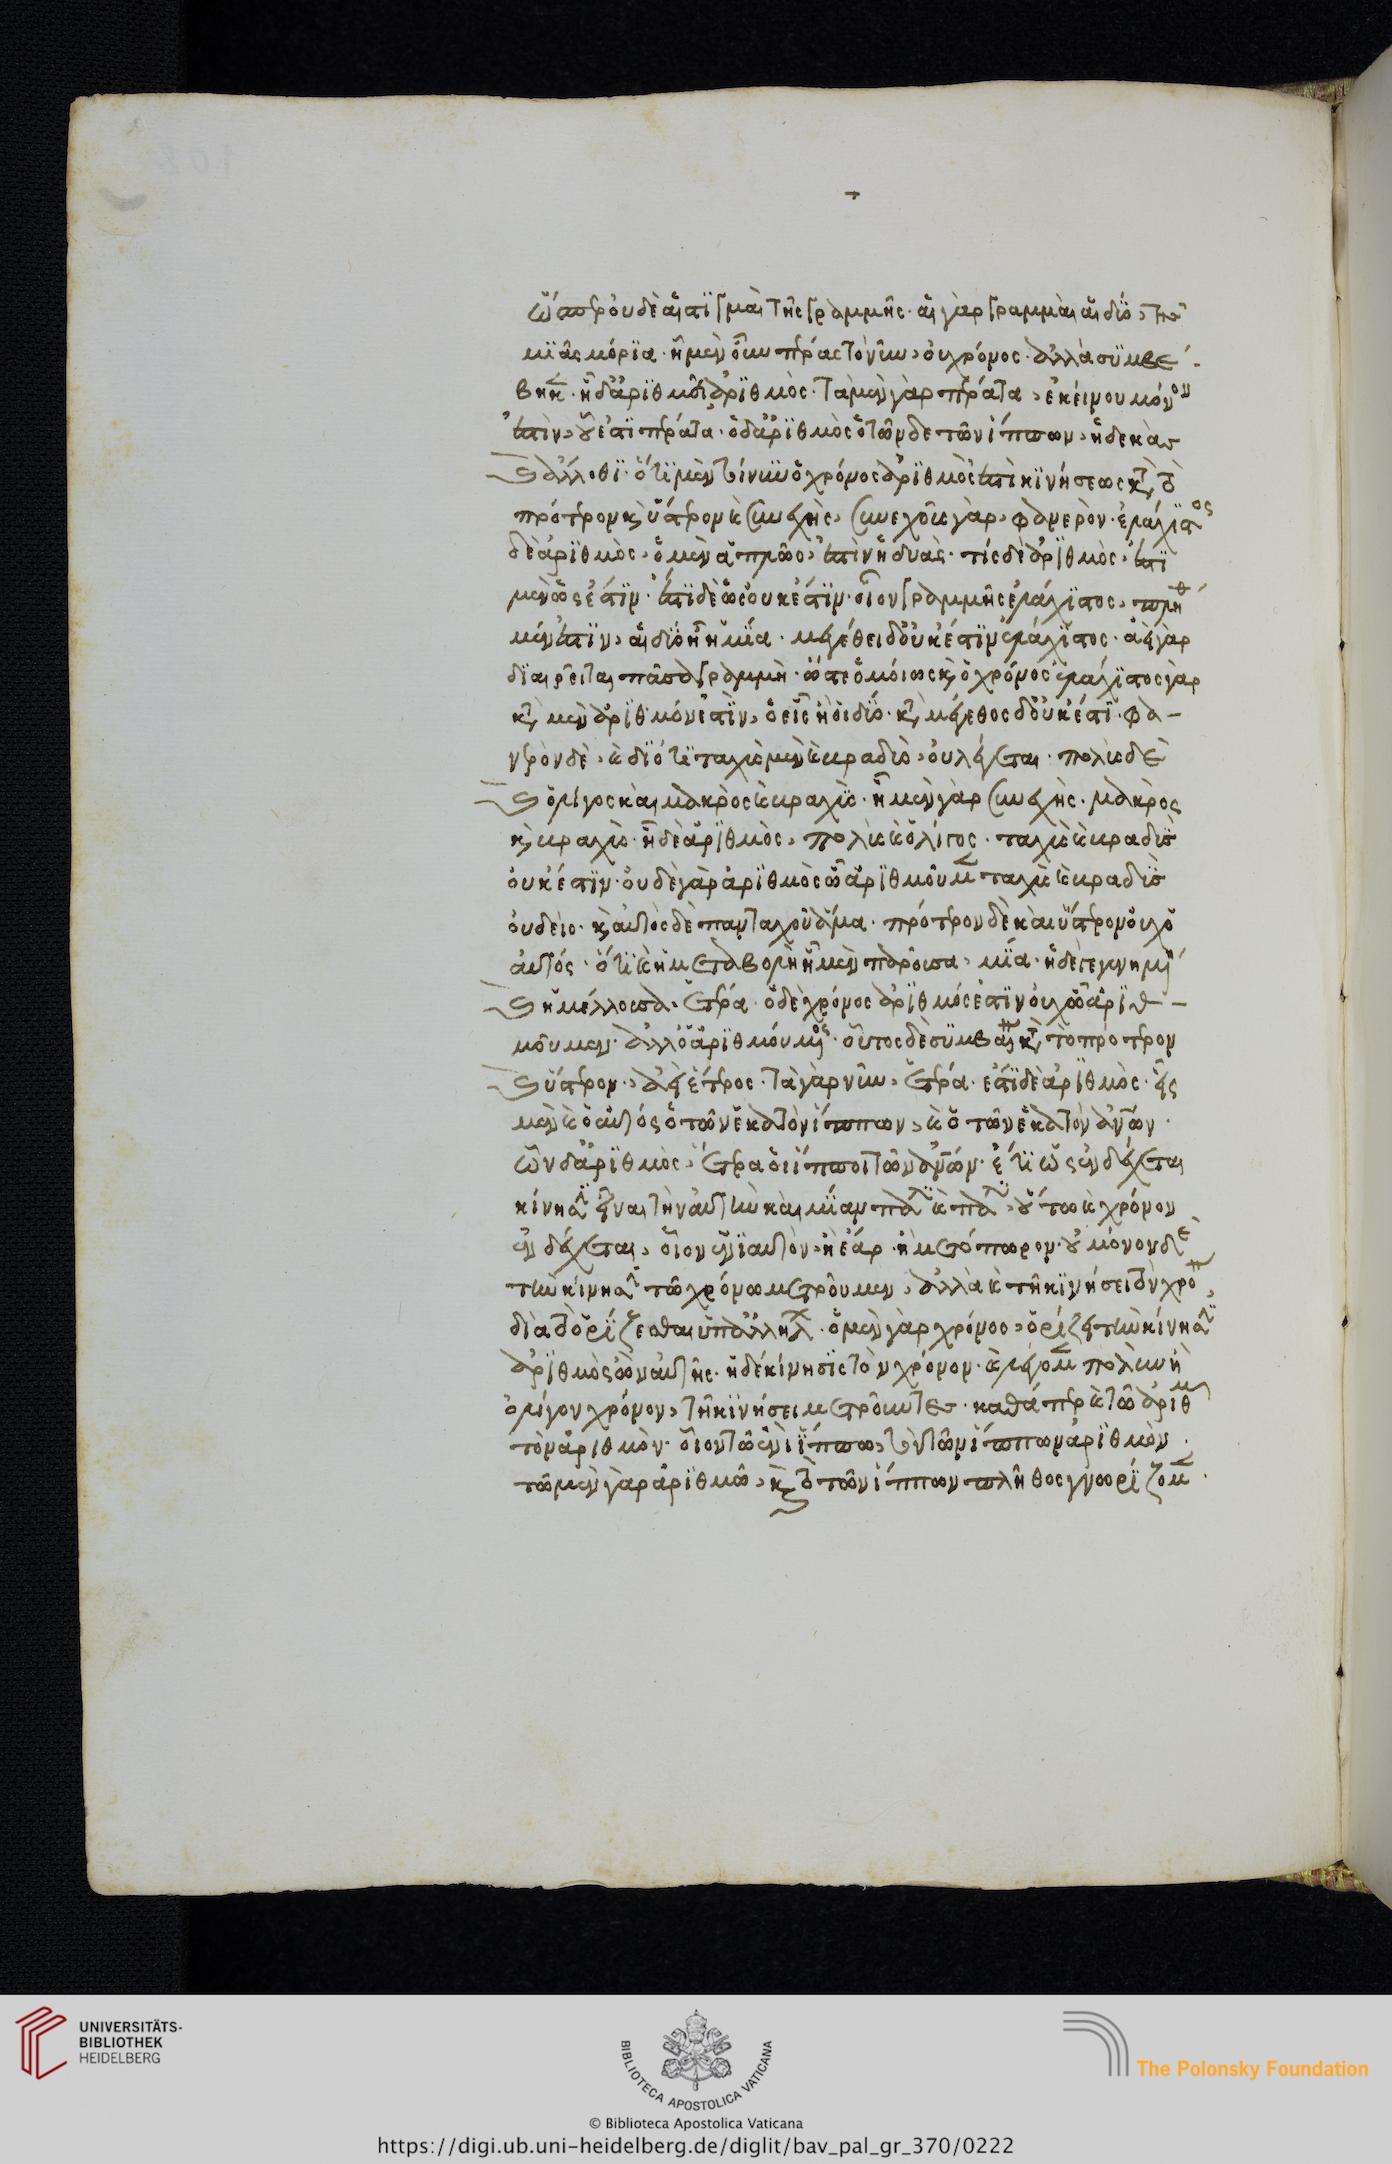 ὥσπερ οὐδὲ αἱ στιγμαὶ τῆς γραμμῆς· αἱ γὰρ γραμμαὶ αἱ δύο, τῆς
μιᾶς μόρια· ἧ μὲν οὖν πέρας τὸ νῦν, οὐ χρόνος· ἀλλὰ συμβέ-
βηκεν· ἧ δ' ἀριθμεῖ ἀριθμὸς· τὰ μὲν γὰρ πέρατα, ἐκείνου μόνον
ἐστὶν, οὗ ἐστὶ πέρατα· ὁ δ' ἀριθμὸς ὁ τῶνδε τῶν ἵππων, ἡ δεκὰς
καὶ ἄλλοθι· ὅτι μὲν τοίνυν ὁ χρόνος ἀριθμὸς ἐστὶ κινήσεως κατὰ τὸ
πρότερον καὶ ὕστερον καὶ συνεχὴς, συνεχοῦς γὰρ, φανερὸν· ἐλάχιστος
δὲ ἀριθμὸς, ὁ μὲν ἁπλῶς, ἐστὶν ἡ δυὰς· τὶς δὲ ἀριθμὸς, ἔστι
μὲν ὡς ἔστιν· ἔστι δὲ ὡς οὐκ ἔστιν· οἷον γραμμῆς ἐλάχιστος, πλήθει
μέν ἐστιν, αἱ δύο ἢ ἡ μία· μεγέθει δ' οὐκ ἔστιν ἐλάχιστος· ἀεὶ γὰρ
διαιρεῖται πᾶσα γραμμὴ· ὥστε ὁμοίως καὶ ὁ χρόνος· ἐλάχιστος γὰρ
κατὰ μὲν ἀριθμόν ἐστὶν, ὁ εἷς ἢ οἱ δύο· κατὰ μέγεθος δ' οὐκ ἔστι· φα-
νερὸν δὲ, καὶ διότι ταχὺς μὲν καὶ βραδὺς, οὐ λέγεται· πολὺς δὲ
καὶ ὀλίγος καὶ μακρὸς καὶ βραχὺς· ἧ μὲν γὰρ συνεχὴς· μακρὸς
καὶ βραχὺς· ἧ δὲ ἀριθμὸς, πολὺς καὶ ὀλίγος· ταχὺς καὶ βραδὺς
οὐκ ἔστιν· οὐδὲ γὰρ ἀριθμὸς ὧ ἀριθμοῦμεν ταχὺς καὶ βραδὺς
οὐδεὶς· καὶ αὐτὸς δὲ πανταχοῦ ἅμα· πρότερον δὲ καὶ ὕστερον οὐχ ὁ
αὐτός· ὅτι καὶ ἡ μεταβολὴ ἡ μὲν παροῦσα, μία· ἡ δὲ γεγενημένη
καὶ ἡ μέλλουσα, ἑτέρα· ὁ δὲ χρόνος ἀριθμός ἐστὶν οὐχ ὧ ἀριθ-
μοῦμεν· ἀλλ' ὁ ἀριθμούμενος· οὗτος δὲ συμβαίνει κατὰ τὸ πρότερον
καὶ ὕστερον, ἀεὶ ἕτερος· τὰ γὰρ νῦν, ἕτερα· ἔστι δὲ ἀριθμὸς· εἷς
μὲν καὶ ὁ αὐτός ὁ τῶν ἑκατὸν ἵππων, καὶ ὁ τῶν ἑκατὸν ἀνθρώπων·
ὧν δ' ἀριθμὸς, ἕτερα οἱ ἵπποι τῶν ἀνθρώπων· ἔτι ὡς ἐνδέχεται
κίνησιν εἶναι τὴν αὐτὴν καὶ μίαν πάλιν καὶ πάλιν, οὕτως καὶ χρόνον
ἐνδέχεται, οἷον ἐνιαυτὸν, ἢ ἔαρ· ἢ μετόπωρον· οὐ μόνον δὲ
τὴν κίνησιν τῶ χρόνω μετροῦμεν, ἀλλὰ καὶ τῇ κινήσει τὸν χρόνον,
διὰ τὸ ὁρίζεσθαι ὑπ' ἀλλήλων· ὁ μὲν γὰρ χρόνος, ὁρίζει τὴν κίνησιν
ἀριθμὸς ὢν αὐτῆς· ἡ δὲ κίνησις τὸν χρόνον· καὶ λέγομεν πολὺν ἢ
ὀλίγον χρόνον, τῇ κινήσει μετροῦντες· καθάπερ καὶ τῶ ἀριθμητῶ
τὸν ἀριθμὸν· οἷον τῶ ἑνὶ ἵππω, τὸν τῶν ἵππων ἀριθμὸν·
τῶ μὲν γὰρ ἀριθμῶ, καὶ τὸ τῶν ἵππων πλῆθος γνωρίζομεν·
UNIVERSITÄTS-
BIBLIOTHEK
HEIDELBERG
BIBLIOTECA APOSTOLICA VATICANA
The Polonsky Foundation
© Biblioteca Apostolica Vaticana
https://digi.ub.uni-heidelberg.de/diglit/bav_pal_gr_370/0222